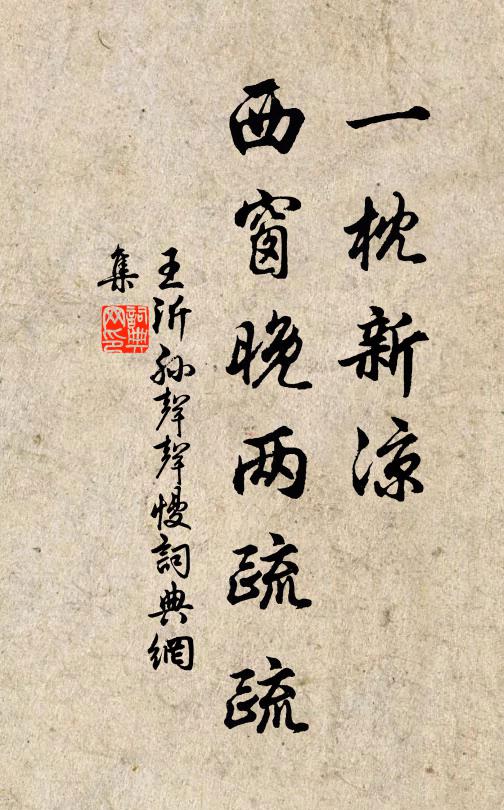 一枕新涼
西窗晚两疏疏
王沂孙聲聲慢詞典網
集
詞典
网印